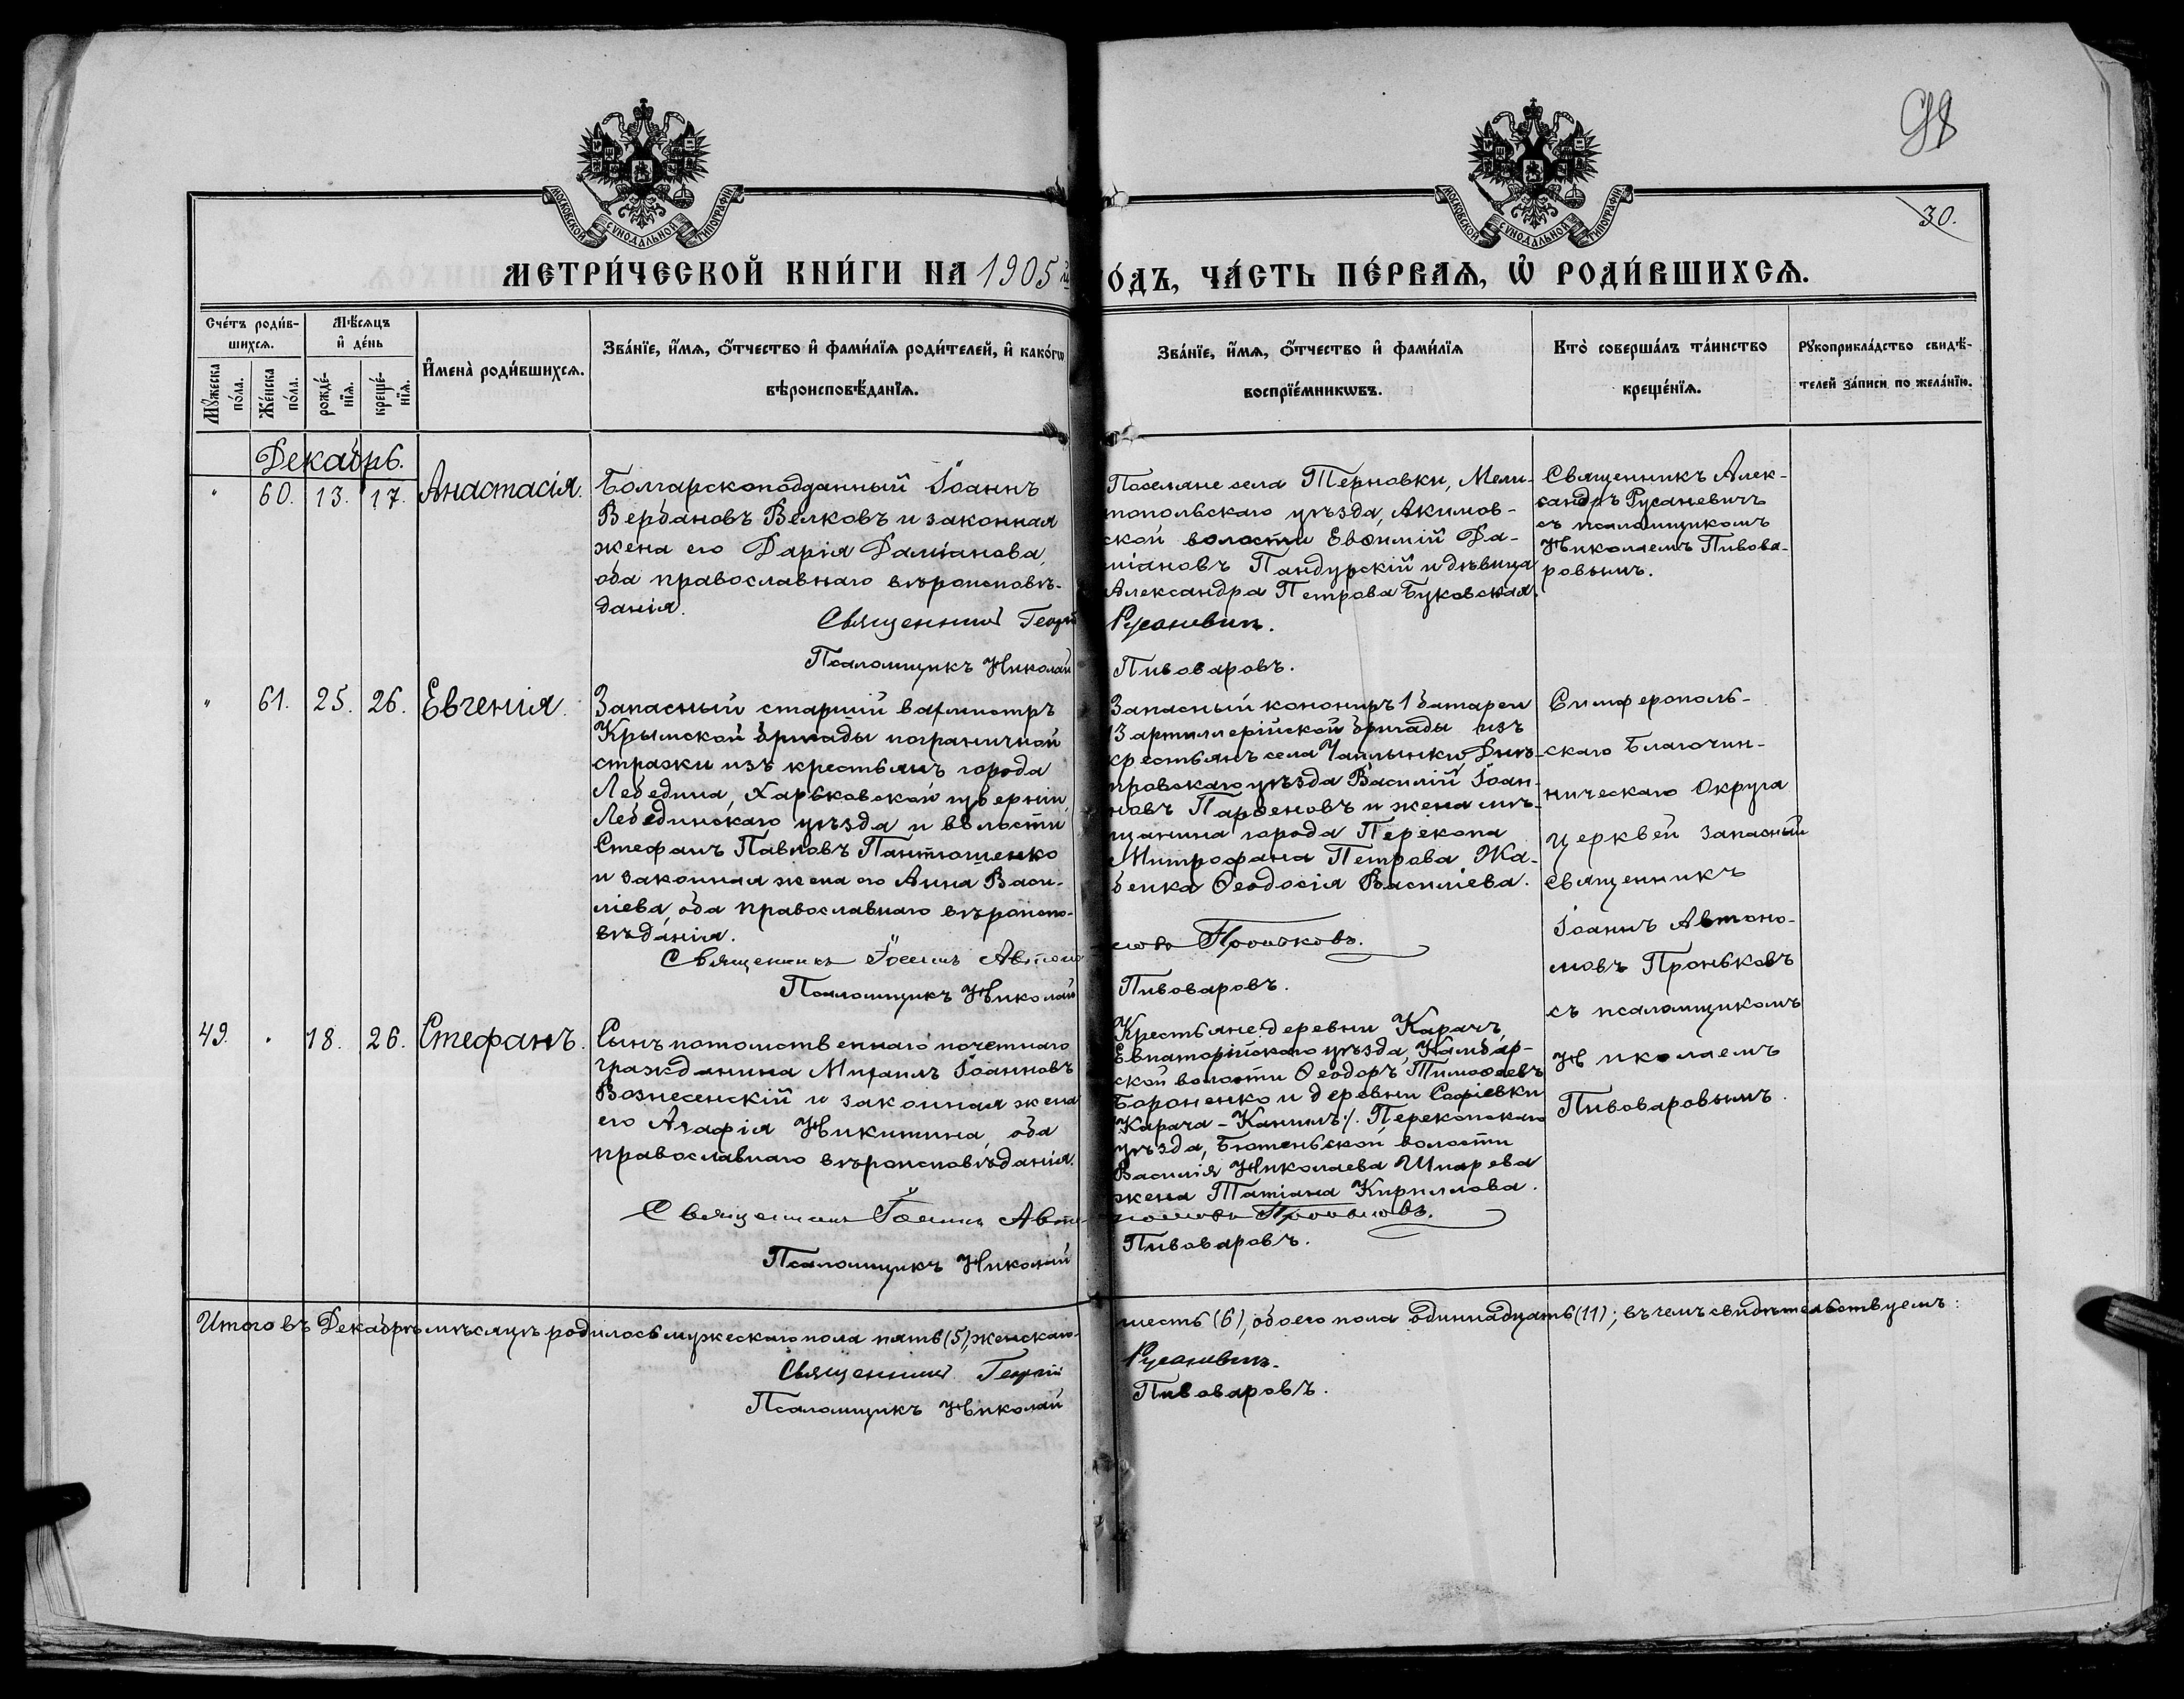 98
30.
МОСКОВСКОЙ СУНОДАЛЬНОЙ ТИПОГРАФІИ
МОСКОВСКОЙ СУНОДАЛЬНОЙ ТИПОГРАФІИ
МЕТРИ́ЧЕСКОЙ КНИ́ГИ НА 1905 й
О́ДЪ, ЧА́СТЬ ПЕ́РВАѦ, Ѡ҆ РОДИ́ВШИХСѦ.
Сче́тъ роди́в-
шихсѧ.
Мѣ́сѧцъ
и҆ де́нь
Мꙋ́жеска
по́ла.
Же́нска
по́ла.
рожде́-
нїѧ.
креще́-
нїѧ.
И҆мена̀ роди́вшихсѧ.
Зва́нїе, и҆́мѧ, ѻ҆́тчество и҆ фами́лїѧ роди́телей, и҆ како́гѡ
вѣроисповѣ́данїѧ.
Зва́нїе, и҆́мѧ, ѻ҆́тчество и҆ фами́лїѧ
воспрїе́мникѡвъ.
Кто̀ соверша́лъ та́инство
креще́нїѧ.
Рꙋкоприкла́дство свидѣ́-
телей за́писи по жела́нїю.
Декабрь.
" 60. 13. 17. Анастасія.
Болгарскоподданный Іоаннъ
Вербановъ Велковъ и законная
жена его Дарія Даміанова,
оба православнаго вѣроисповѣ-
данія.
Священникъ Георгій
Псаломщикъ Николай
Поселяне села Терновки, Мели-
топольскаго уѣзда, Акимов-
ской волости Евѳимій Да-
міановъ Пандурскій и дѣвица
Александра Петрова Буковская.
Русаневичъ.
Пивоваровъ.
Священникъ Алек-
сандръ Русаневичъ
съ псаломщикомъ
Николаемъ Пивова-
ровымъ.
" 61. 25. 26. Евгенія.
Запасный старшій вахмистръ
Крымской бригады пограничной
стражи изъ крестьянъ города
Лебедина, Харьковской губерніи,
Лебединскаго уѣзда и волости
Стефанъ Павловъ Пантюшенко
и законная жена его Анна Васи-
ліева, оба православнаго вѣроиспо-
вѣданія.
Священникъ Іоаннъ Автоно
Псаломщикъ Николай
Запасный кононирѣ 1 батареи
13 артиллерійской бригады изъ
крестьянъ села Чаплынки, Днѣ-
провскаго уѣзда Василій Іоан-
новъ Парѳеновъ и жена мѣ-
щанина города Перекопа
Митрофана Петрова Жа-
бенка Ѳеодосія Василіева.
мовъ Проньковъ.
Пивоваровъ.
Симферополь-
скаго Благочин-
ническаго Округа
церквей запасный
священникъ
Іоаннъ Автоно-
мовъ Проньковъ
съ псаломщикомъ
Николаемъ
Пивоваровымъ.
49. " 18. 26. Стефанъ.
Сынъ потомственнаго почетнаго
гражданина Михаилъ Іоанновъ
Вознесенскій и законная жена
его Агафія Никитина, оба
православнаго вѣроисповѣданія.
Священникъ Іоаннъ Авто-
Псаломщикъ Николай
Крестьяне: деревни Карачъ,
Евпаторійскаго уѣзда, Камбар-
ской волости Ѳеодоръ Тимоѳеевъ
Бороненко и деревни Софіевки
Карача-Кангилъ /. Перекопскаго
уѣзда, Бютеньской волости
Василія Николаева Шпарева
жена Татіана Кириллова.
номовъ Проньковъ.
Пивоваровъ.
Итого въ Декабрѣ мѣсяцѣ родилось мужескаго пола пять (5), женскаго-
шесть (6), обоего пола одиннадцать (11); въ чемъ свидѣтельствуемъ:
Священникъ Георгій
Русаневичъ.
Псаломщикъ Николай
Пивоваровъ.